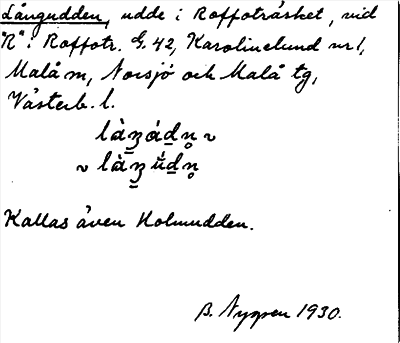 Långudden, udde i Roffoträsket, vid
"R" i Roffotr. G. 42, Karolinelund nr 1,
Malå m, Norsjö och Malå tg,
Västerb. l.
Kallas även Holmudden.
B. Nygren 1930.